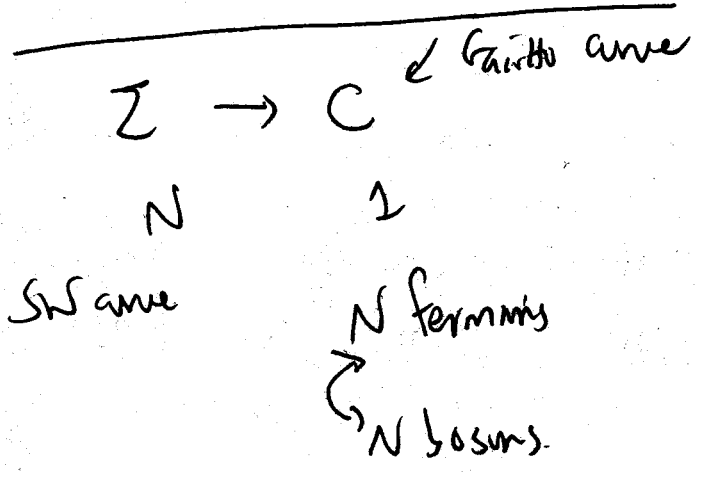 ↙ Gaiotto curve
Σ → C
N 1
SW curve
N fermions
N bosons.